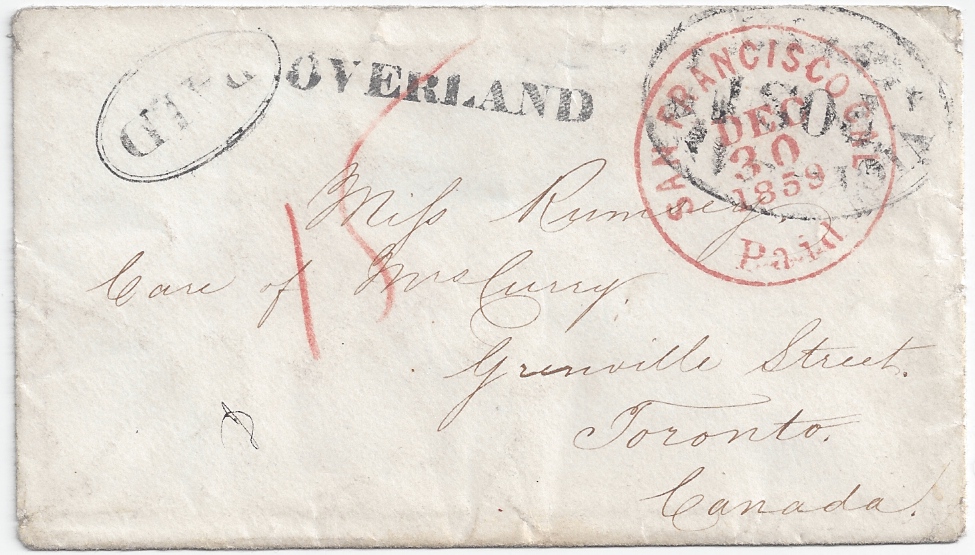 PAID
OVERLAND
SAN FRANCISCO CAL
DEC
30
1859
Paid
15
Miss Rumsey,
Care of Mrs Curry.
Grenville Street.
Toronto.
Canada.